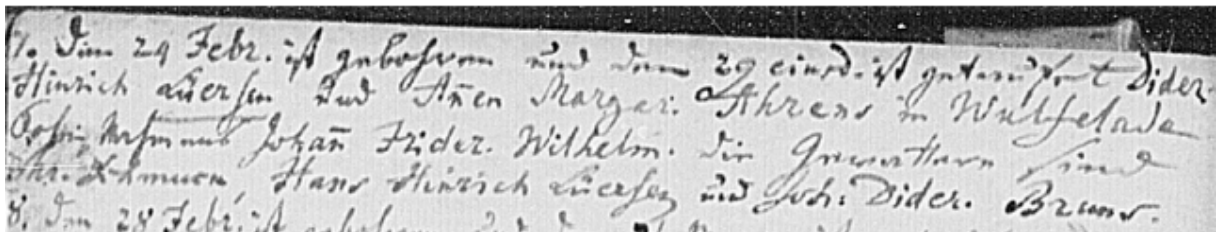 7. Den 24 Febr. ist gebohren und den 29 eiusd. ist getaufet Dider.
Hinrich Lüersen und Añen Margar. Ahrens in Wulfelade
Sohn Nahmens Johañ Frider. Wilhelm. die Gevattern sind
Hans Hinrich Lüersen und Joh. Dider. Bruns.
8. Den 28 Febr. ist gebohren und